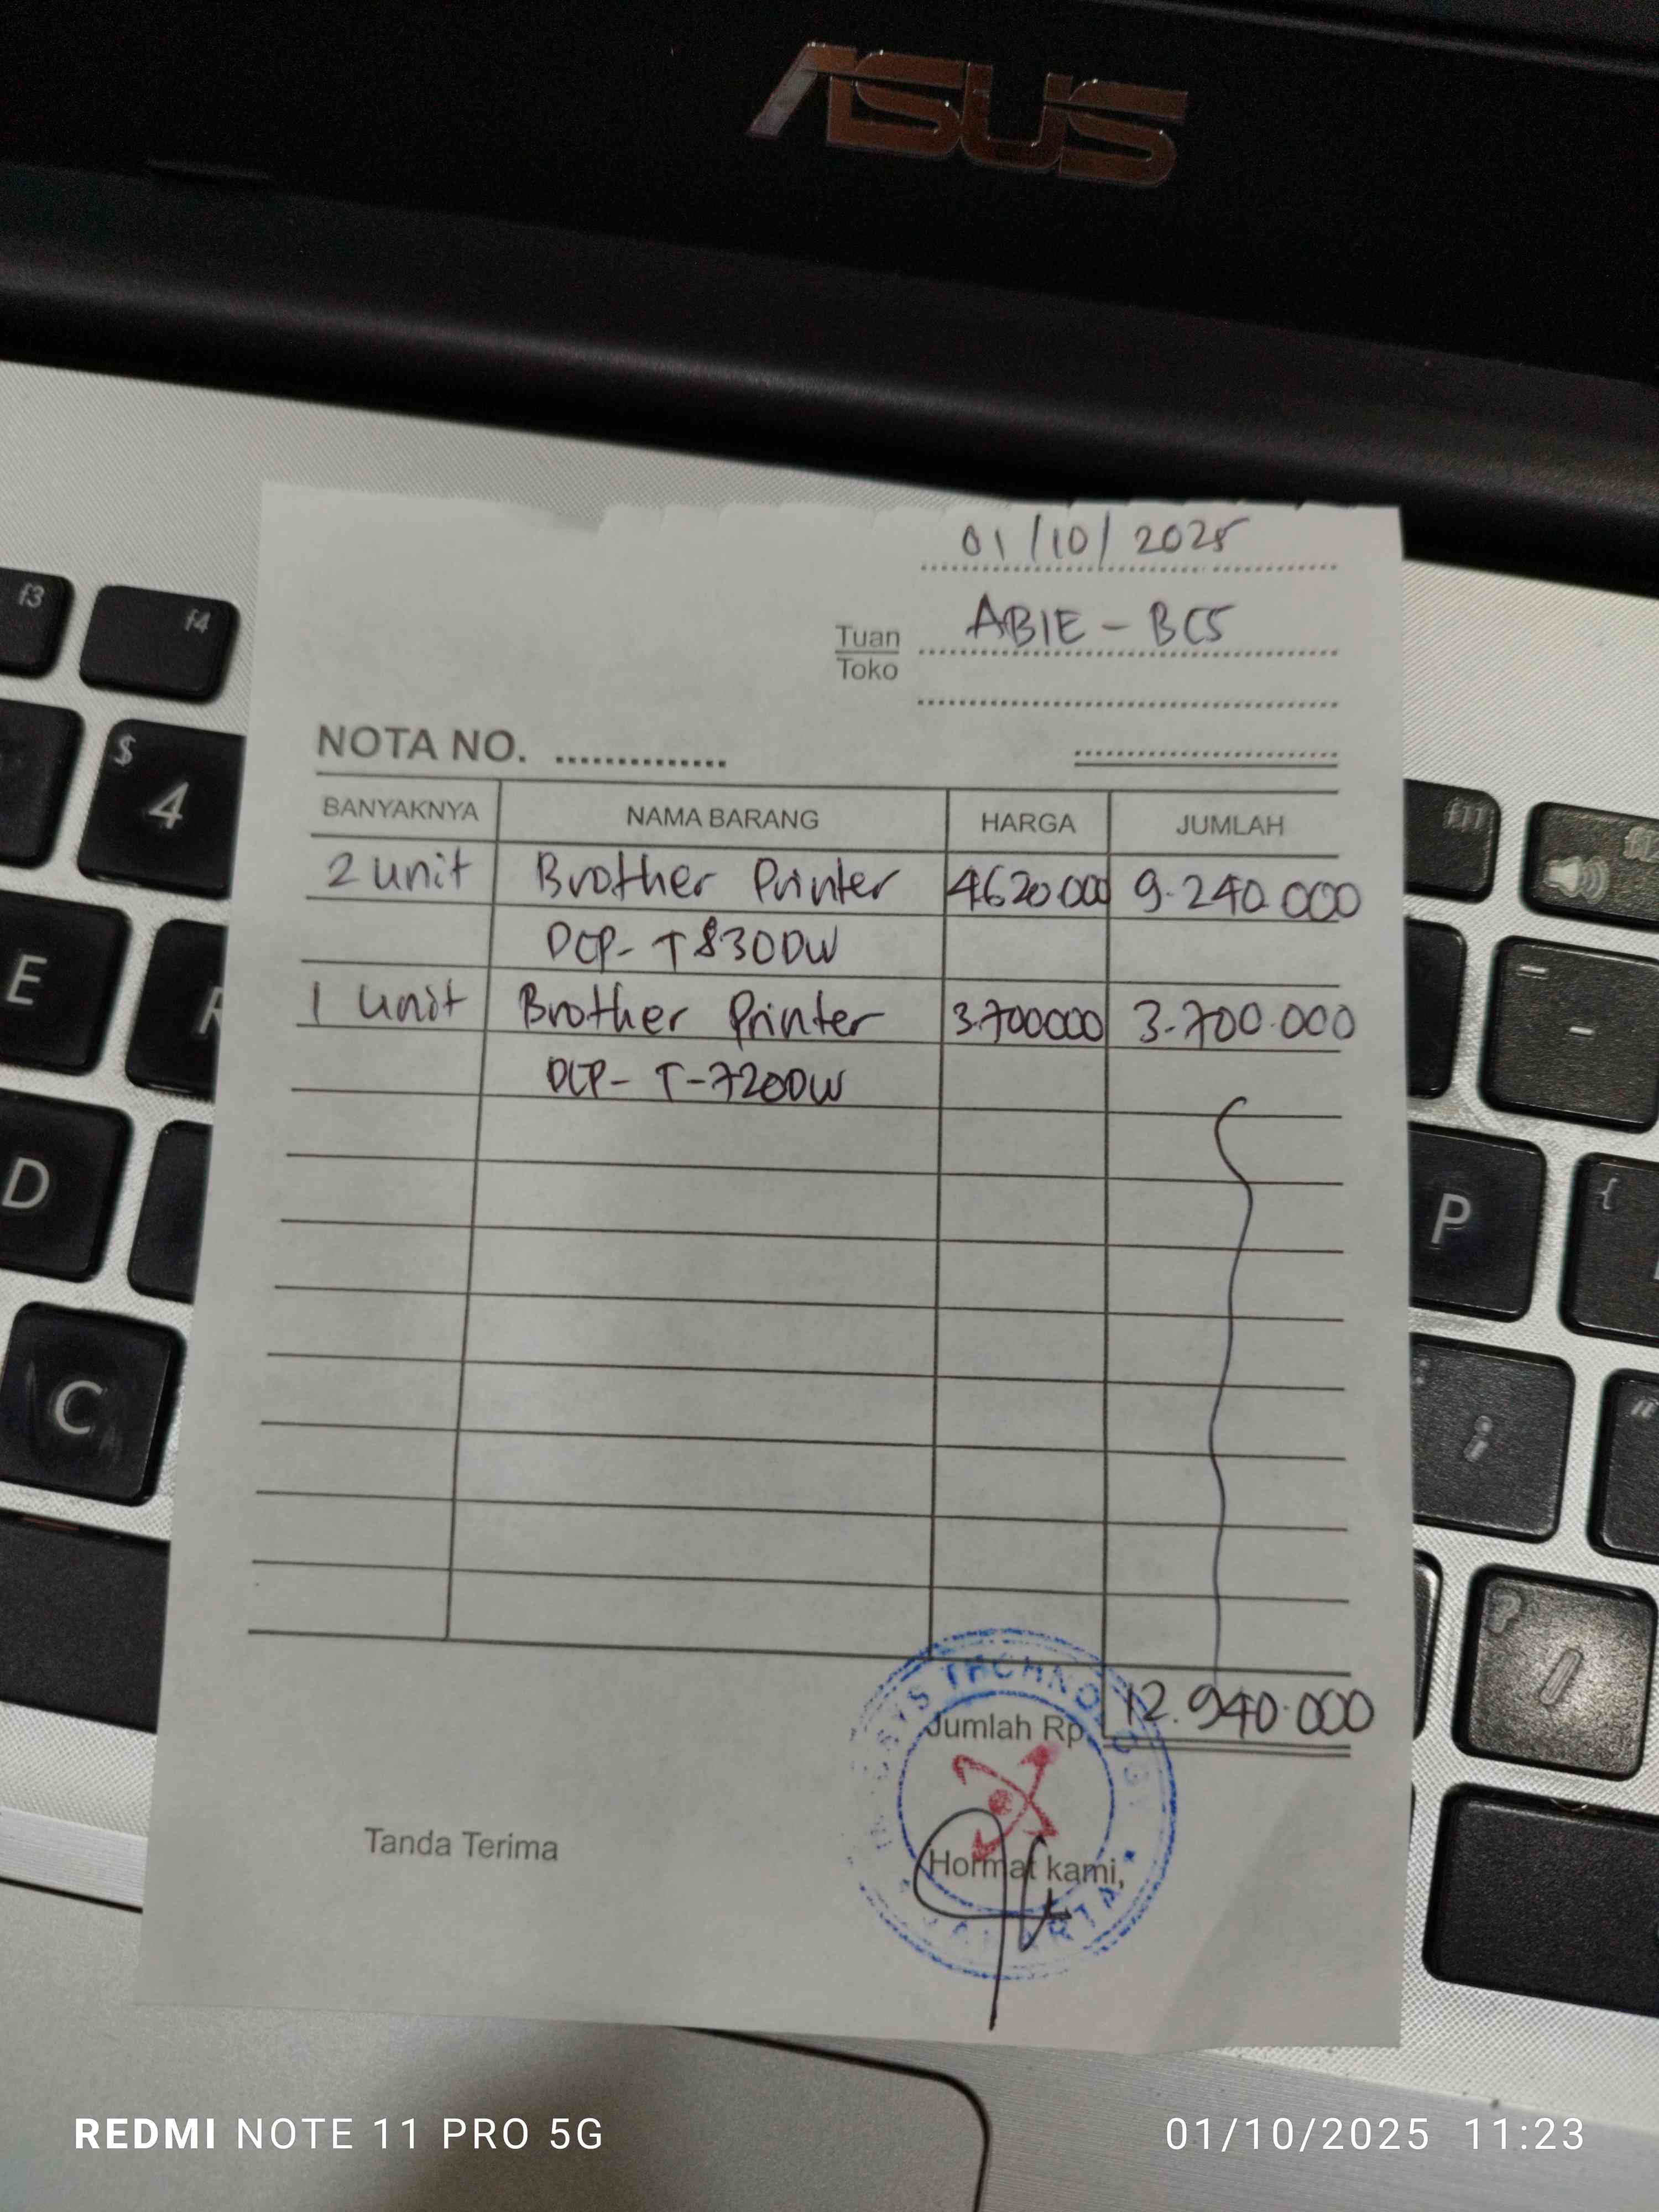 ASUS
f3
f4
f11
$
4
E
R
D
C
P
-
{
;
"
?
/
01/10/2025
Tuan
Toko
ABIE - BCS
NOTA NO. ..............
BANYAKNYA NAMA BARANG HARGA JUMLAH
2 unit Brother Printer 4.620.000 9.240.000
DCP- T830DW
1 unit Brother Printer 3.700000 3.700.000
DCP- T-720DW
Jumlah Rp. 12.940.000
Tanda Terima
Hormat kami,
REDMI NOTE 11 PRO 5G
01/10/2025 11:23